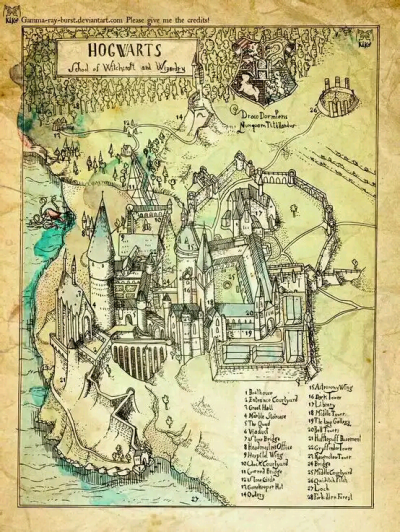 Gamma-ray-burst.deviantart.com Please give me the credits!
HOGWARTS
School of Witchcraft and Wizardry
Draco Dormiens
Nunquam Titillandus
1 Boathouse
2 Entrance Courtyard
3 Great Hall
4 Marble Staircase
5 The Quad
6 Viaduct
7 Stone Bridge
8 Headmasters Office
9 Hospital Wing
10 Clock Courtyard
11 Covered Bridge
12 Stone Circle
13 Gamekeeper Hut
14 Owlery
15 Astronomy Wing
16 Dark Tower
17 Library
18 Middle Tower
19 The Long Gallery
20 Bell Towers
21 Hufflepuff Basement
22 Gryffindor Tower
23 Ravenclaw Tower
24 Bridge
25 Middle Courtyard
26 Quidditch Pitch
27 Loch
28 Forbidden Forest